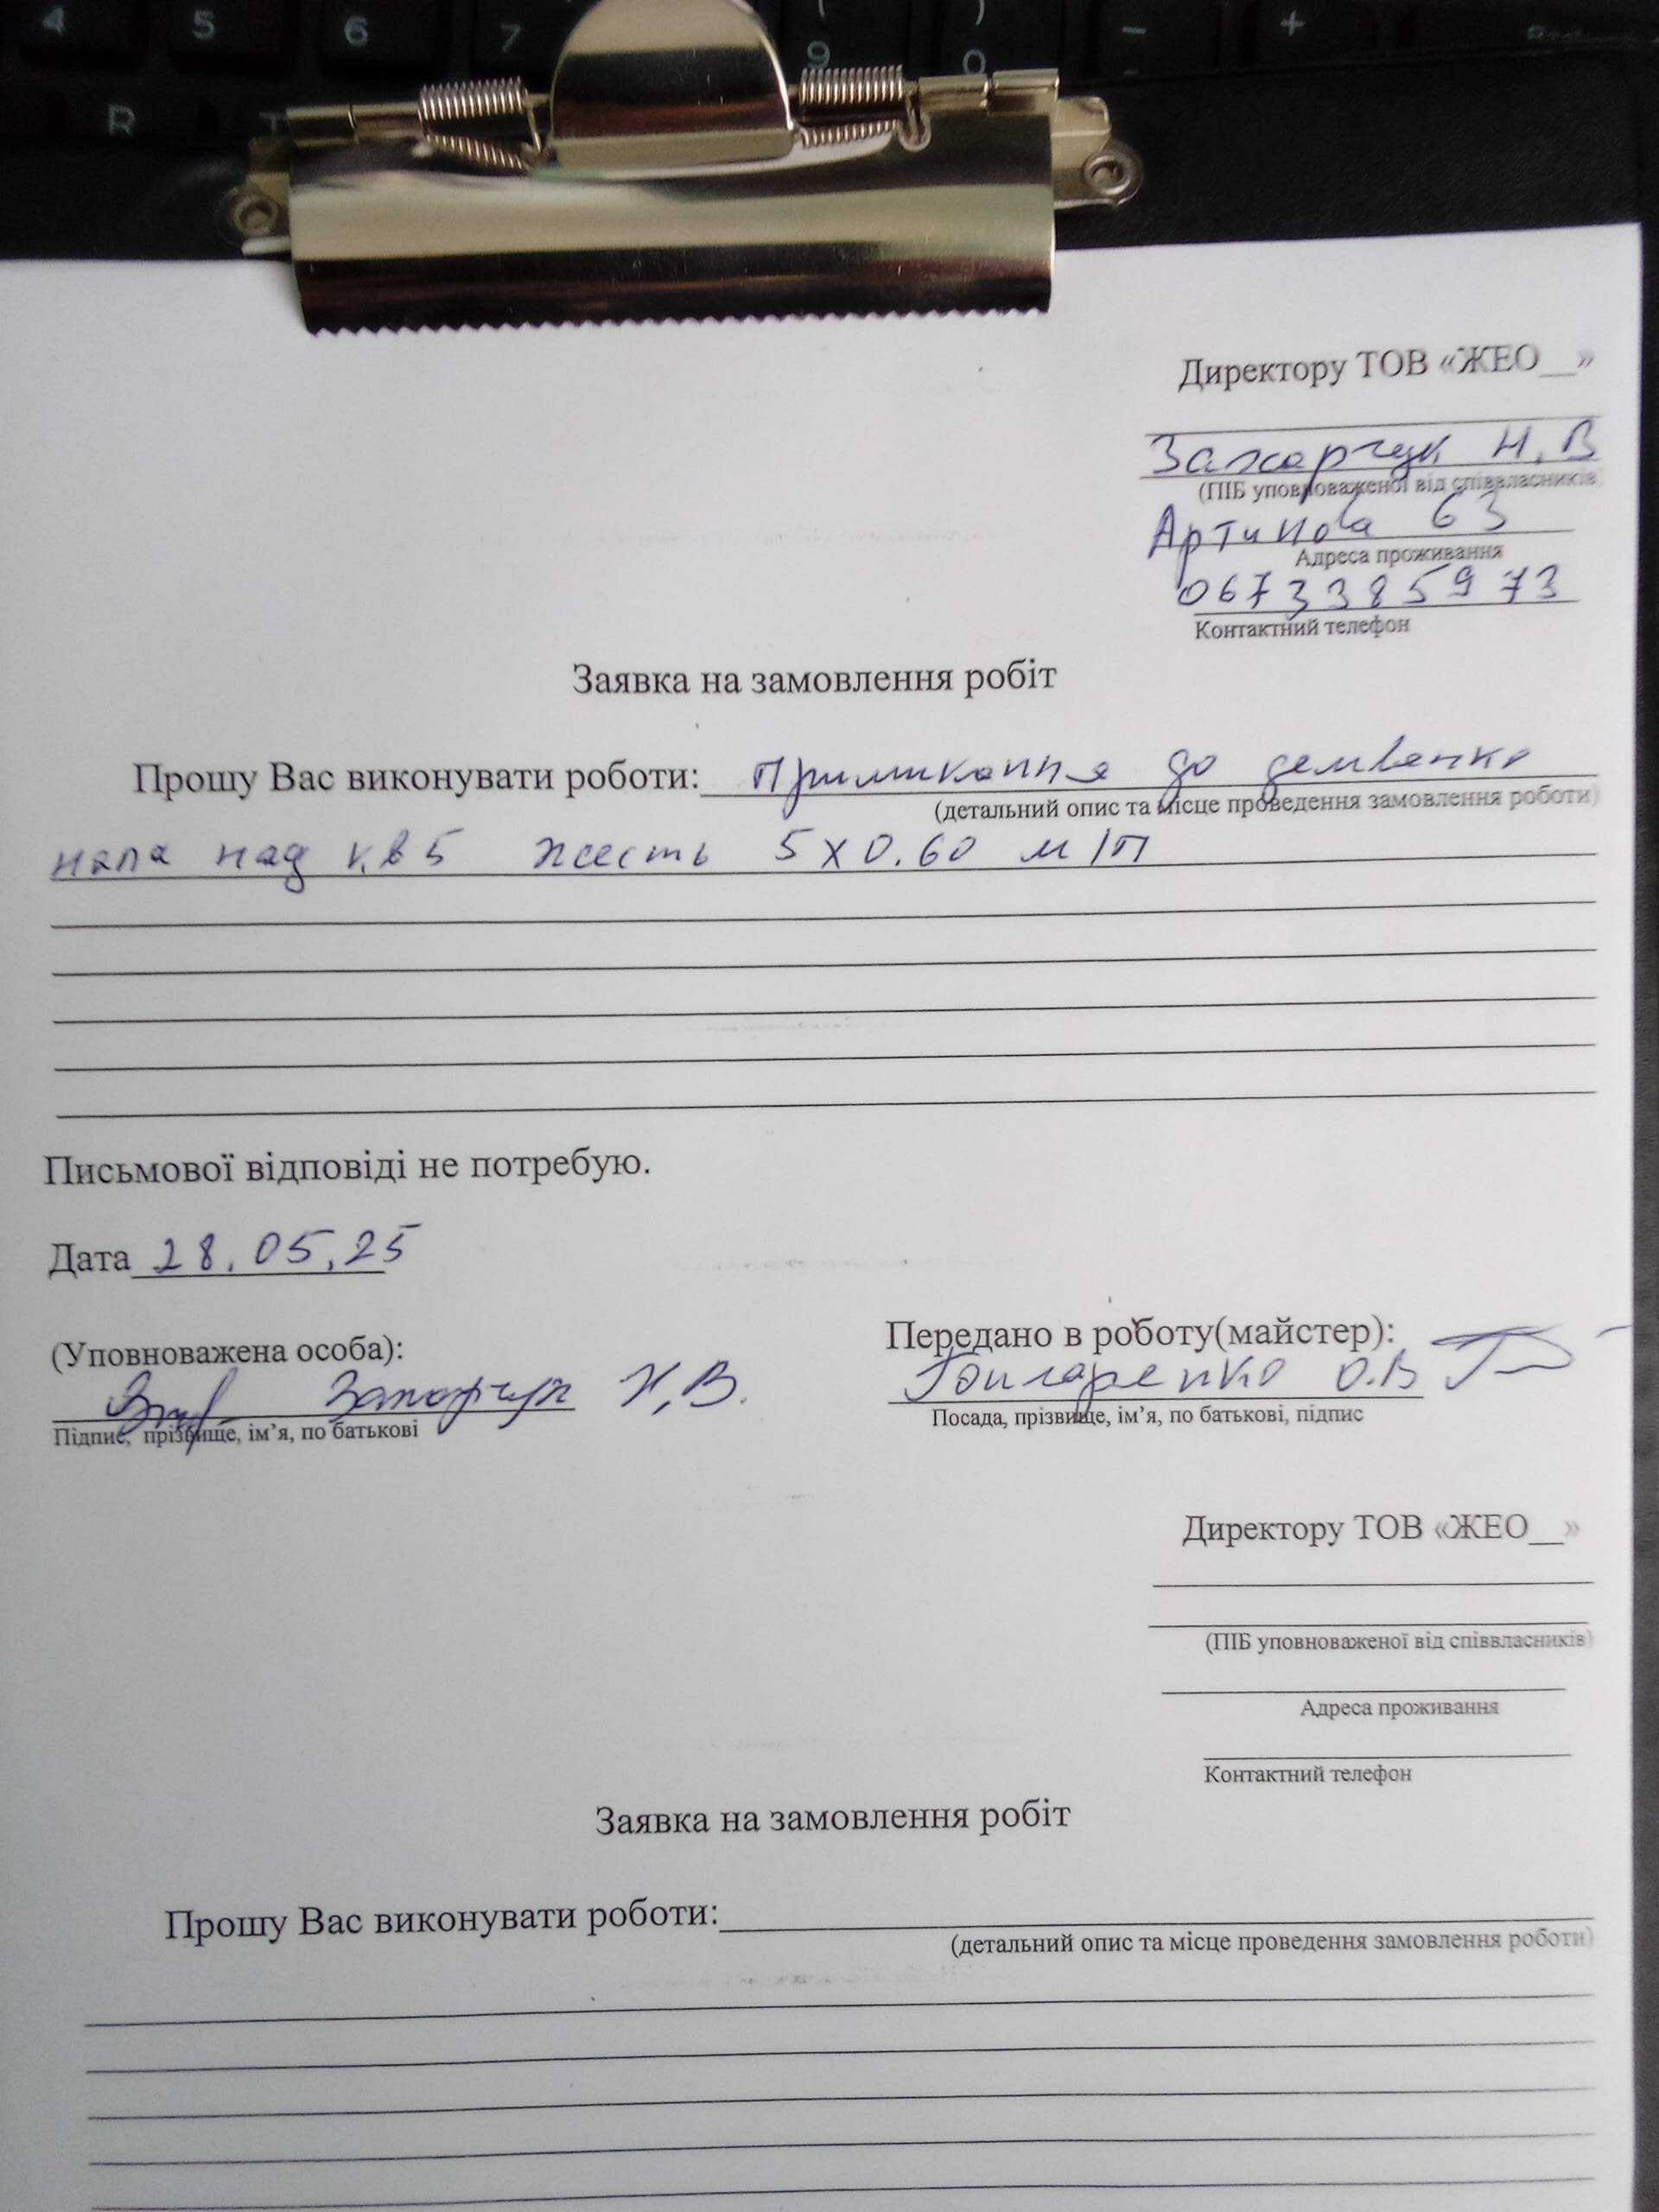 4 5 6 7 9 0 - +
R T
Директору ТОВ «ЖЕО__»
Захарчук Н.В
(ПІБ уповноваженої від співвласників)
Артинова 63
Адреса проживання
0673385973
Контактний телефон
Заявка на замовлення робіт
Прошу Вас виконувати роботи: Примикання до демвенко
(детальний опис та місце проведення замовлення роботи)
нала над кв 5 жесть 5 х 0.60 м/п
Письмової відповіді не потребую.
Дата 28.05.25
(Уповноважена особа):
Передано в роботу(майстер):
Захарчук Н.В.
Гончаренко О.В
Підпис, прізвище, ім’я, по батькові
Посада, прізвище, ім’я, по батькові, підпис
Директору ТОВ «ЖЕО__»
(ПІБ уповноваженої від співвласників)
Адреса проживання
Контактний телефон
Заявка на замовлення робіт
Прошу Вас виконувати роботи:
(детальний опис та місце проведення замовлення роботи)